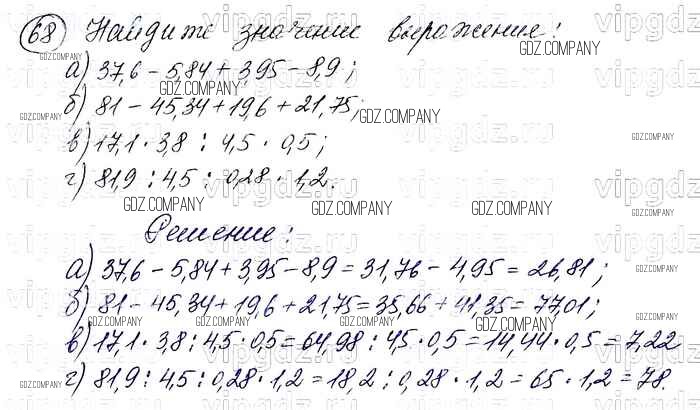 68 Найдите значение выражения:
а) 37,6 - 5,84 + 3,95 - 8,9;
б) 81 - 45,34 + 19,6 + 21,75;
в) 17,1 · 3,8 : 4,5 · 0,5;
г) 81,9 : 4,5 : 0,28 · 1,2.
Решение:
а) 37,6 - 5,84 + 3,95 - 8,9 = 31,76 - 4,95 = 26,81;
б) 81 - 45,34 + 19,6 + 21,75 = 35,66 + 41,35 = 77,01;
в) 17,1 · 3,8 : 4,5 · 0,5 = 64,98 : 4,5 · 0,5 = 14,44 · 0,5 = 7,22
г) 81,9 : 4,5 : 0,28 · 1,2 = 18,2 : 0,28 · 1,2 = 65 · 1,2 = 78.